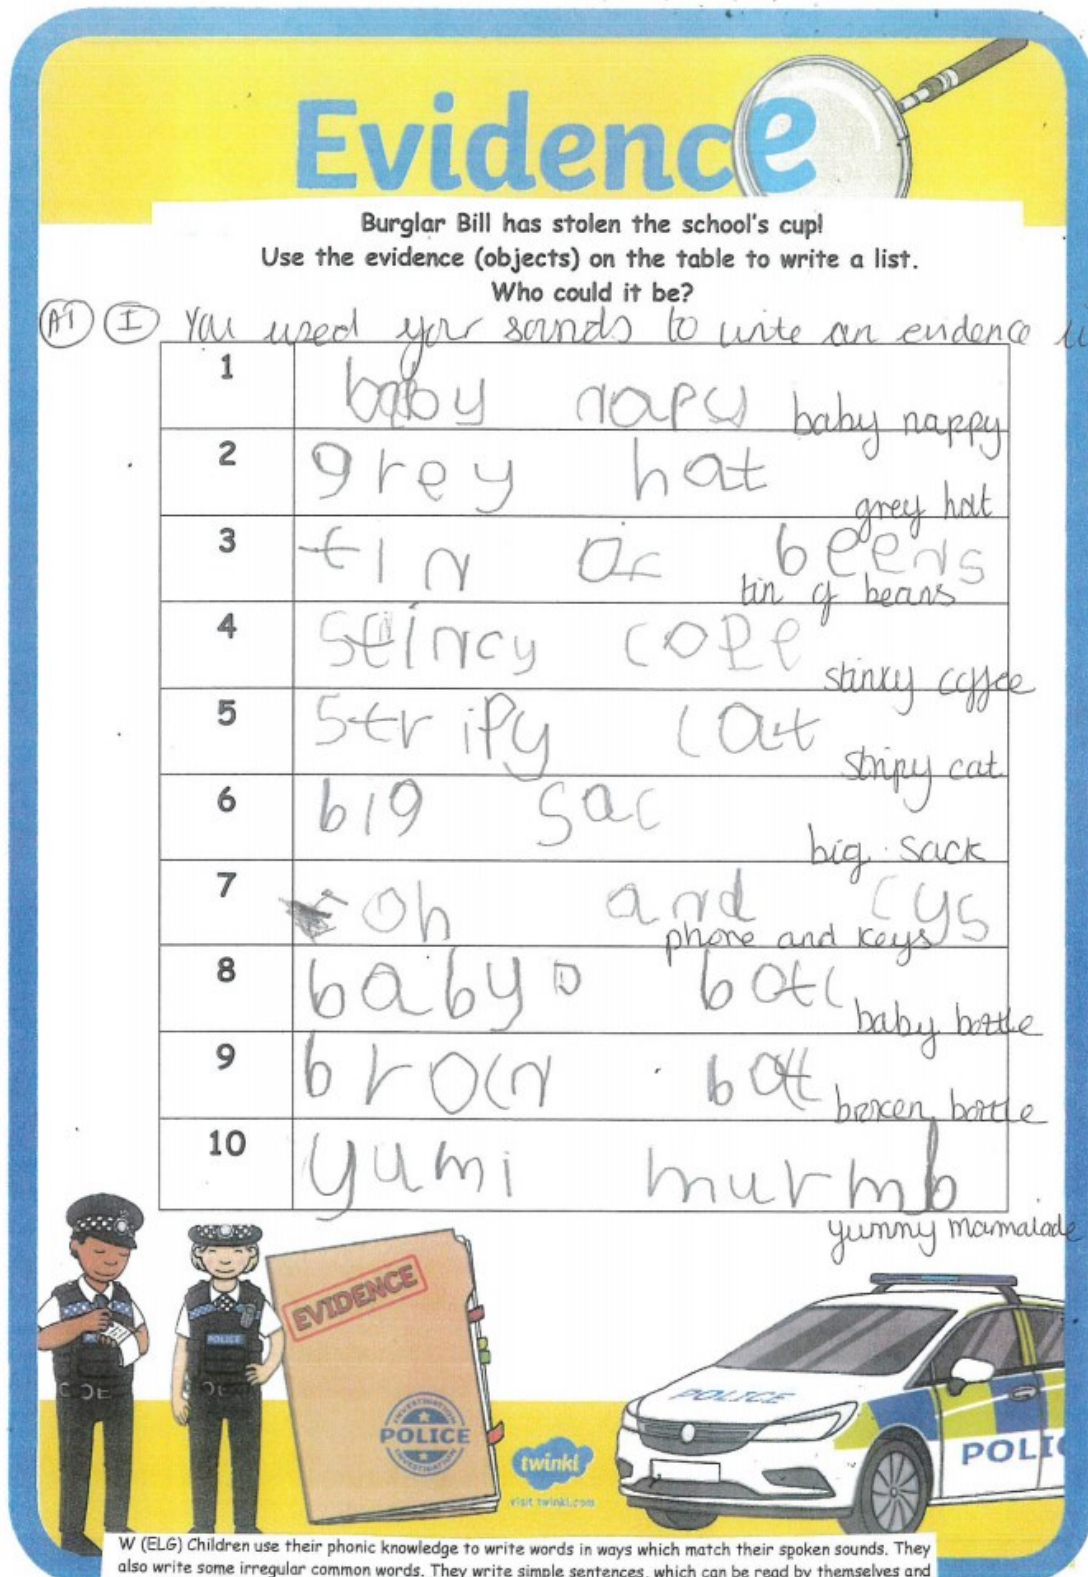 Evidence
Burglar Bill has stolen the school's cup!
Use the evidence (objects) on the table to write a list.
Who could it be?
A1 I You used your sounds to write an evidence li
1 baby napy baby nappy
2 grey hat grey hat
3 tin of beens tin of beans
4 stincy cofe stinky coffee
5 stripy cat stripy cat
6 big sac big sack
7 foh and cys phone and keys
8 baby botl baby bottle
9 brocn botl broken bottle
10 yumi murmb yummy marmalade
EVIDENCE
INVESTIGATION
POLICE
INVESTIGATION
POLICE
POLICE
POLIC
twinkl
visit twinkl.com
W (ELG) Children use their phonic knowledge to write words in ways which match their spoken sounds. They
also write some irregular common words. They write simple sentences, which can be read by themselves and